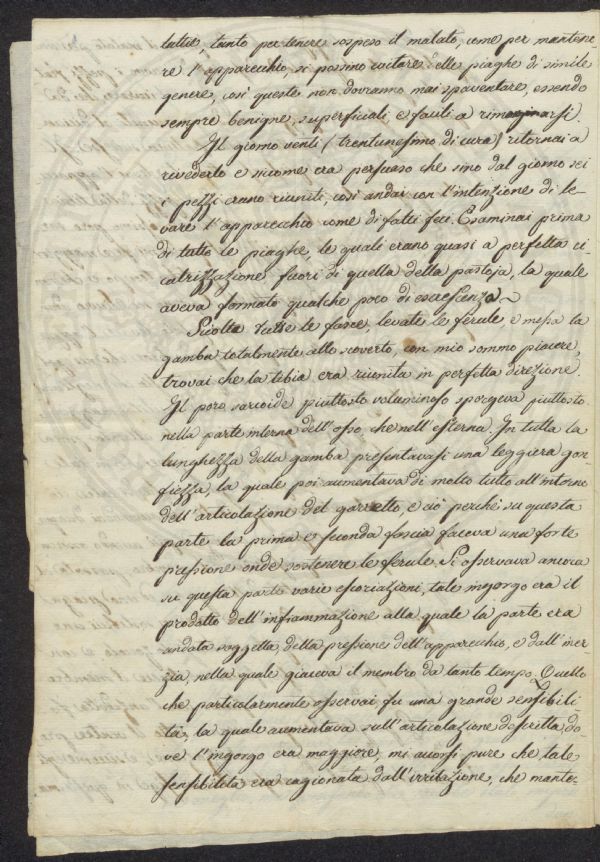 tutto, tanto per tenere sospeso il malato, come per mantene-
re l'apparecchio, si possino evitare elle piaghe di simile
genere, così queste non dovranno mai spaventare, essendo
sempre benigne, superficiali, e facili a rimarginarsi.
Il giorno venti (trentunesimo di cura) ritornai a
rivederlo e siccome era persuaso che sino dal giorno sei
i pezzi erano riuniti, così andai con l'intenzione di le-
vare l'apparecchio come di fatti feci. Esaminai prima
di tutto le piaghe, le quali erano quasi a perfetta ci-
catrizzazione fuori di quella della pastoja, la quale
aveva formato qualche poco di escrescenza.
Sciolte tutte le fasce, levate le ferule e messa la
gamba totalmente allo scoverto, con mio sommo piacere,
trovai che la tibia era riunita in perfetta direzione.
Il poro sarcoide piuttosto voluminoso sporgeva piuttosto
nella parte interna dell'osso, che nell'esterna. In tutta la
lunghezza della gamba presentavasi una leggiera gon
fiezza, la quale poi aumentava di molto tutto all'intorno
dell'articolazione del garretto, e ciò perchè su questa
parte la prima e seconda fascia faceva una forte
pressione onde sostenere le ferule. Si osservava ancora
su questa parte varie escoriazioni, tale ingorgo era il
prodotto dell'infiammazione alla quale la parte era
andata soggetta, della pressione dell'apparecchio, e dall'iner-
zia, nella quale giaceva il membro da tanto tempo. Quello
che particolarmente osservai, fu una grande sensibili-
tà, la quale aumentava sull'articolazione descritta, do-
ve l'ingorgo era maggiore, mi accorsi pure che tale
sensibilità era cagionata dall'irritazione, che mante-